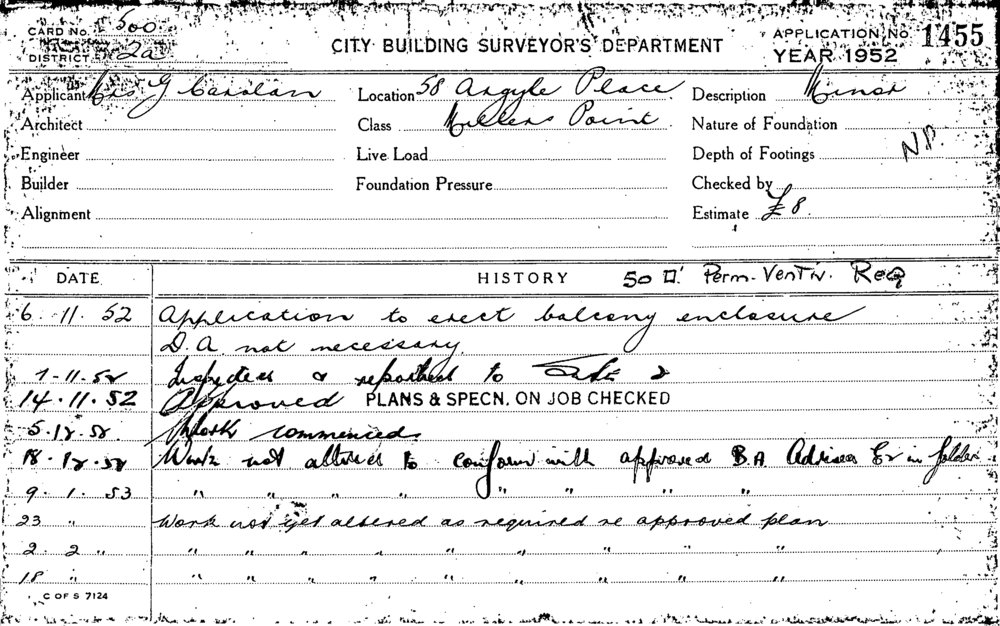 CARD No. 500
DISTRICT 2a
CITY BUILDING SURVEYOR'S DEPARTMENT
APPLICATION No. 1455
YEAR 1952
Applicant Mrs G Carolan Location 58 Argyle Place Description Minor
Architect Class Millers Point Nature of Foundation
Engineer Live Load Depth of Footings N.P.
Builder Foundation Pressure Checked by
Alignment Estimate £8.
DATE HISTORY 50 □' Perm. Ventn. Req
6. 11. 52 Application to erect balcony enclosure
D.A. not necessary
7-11-52 Inspected & reported to
14.11.52 Approved PLANS & SPECN. ON JOB CHECKED
5.12.52 Work commenced
18.12.52 Work not altered to conform with approved B.A. Advised in folder
9. 1. 53 " " " " " " " "
23 " Work not yet altered as required re approved plan
2. 2 " " " " " " " " " "
18 " " " " " " " " " "
C OF S 7124